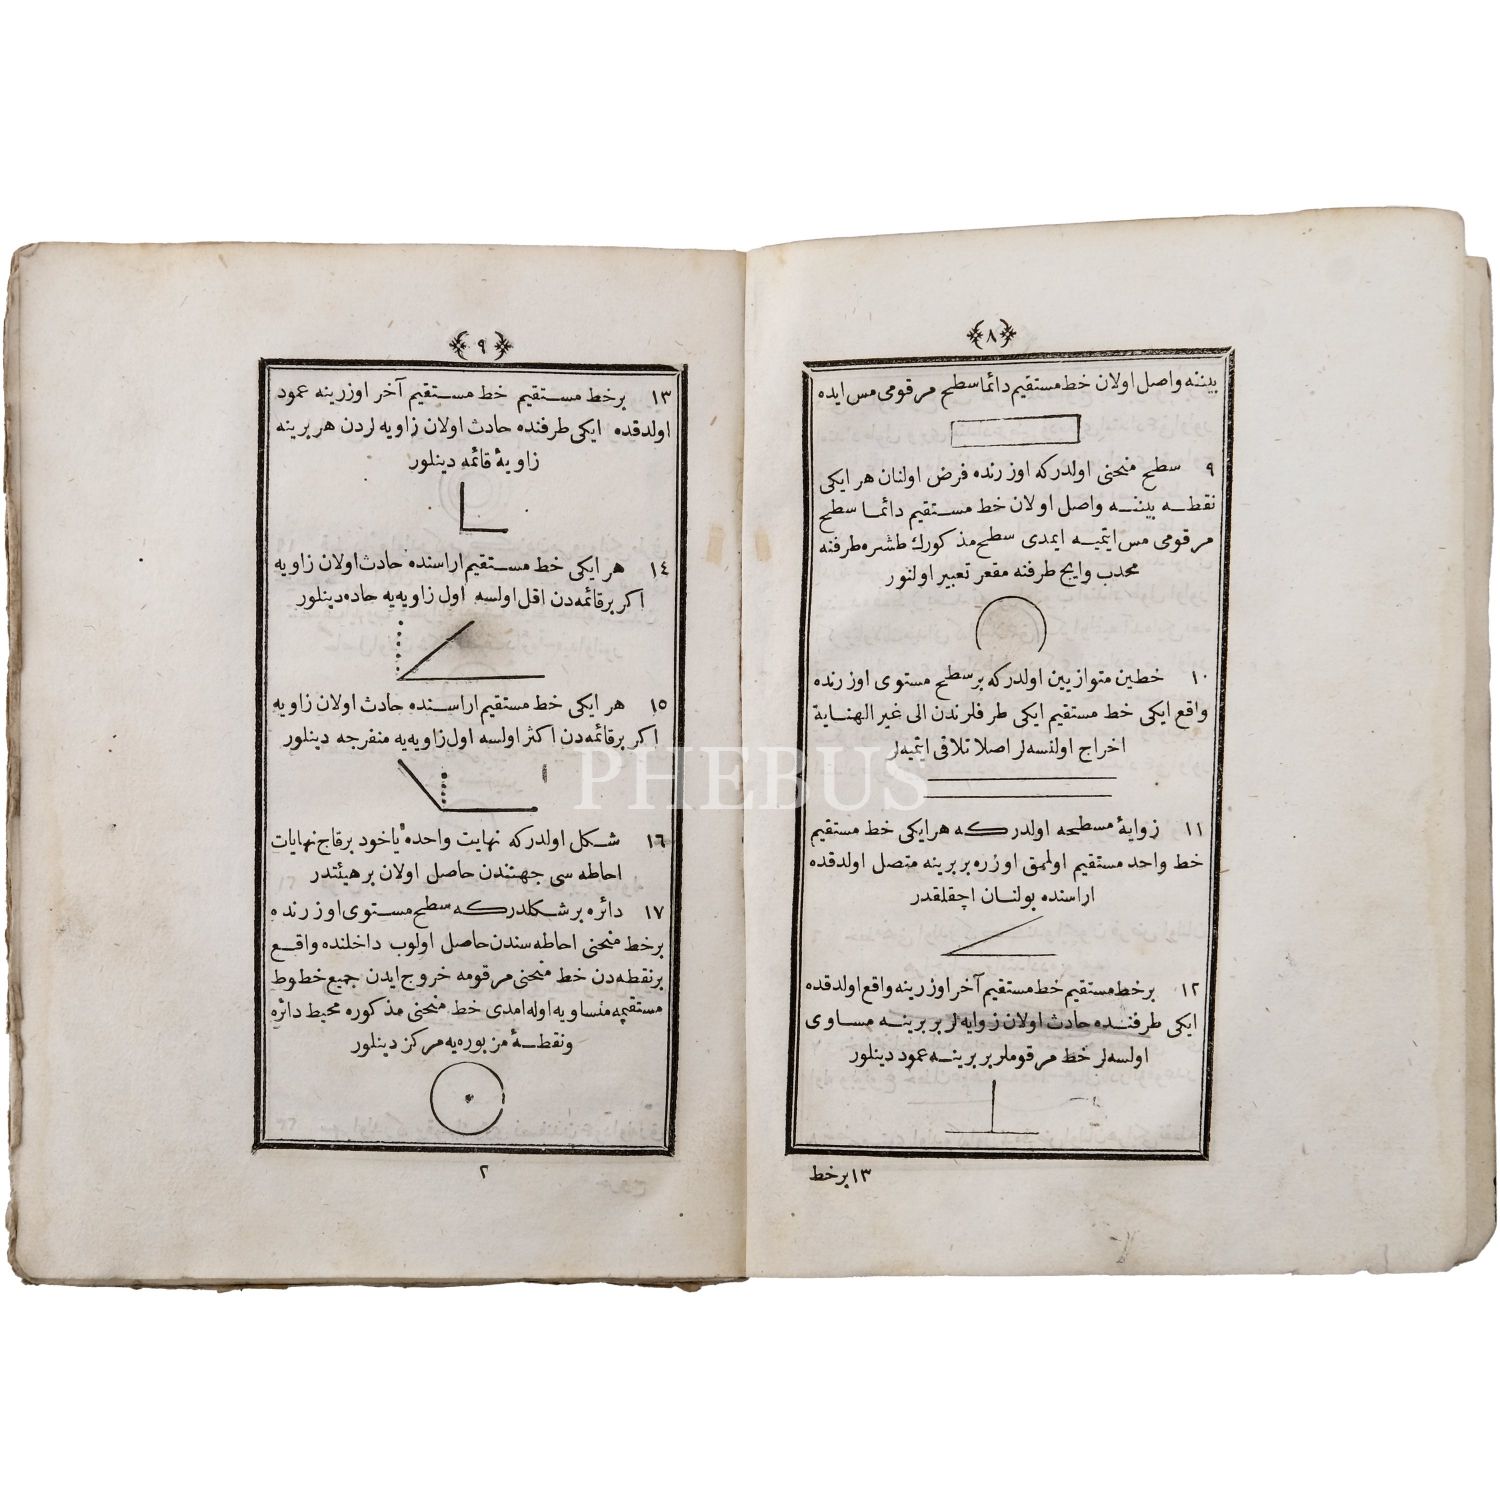 ٨
بیننه واصل اولان خط مستقیم دائما سطح مرقومی مس ایده
٩ سطح منحنی اولدرکه اوزرنده فرض اولنان هر ایکی
نقطه بیننه واصل اولان خط مستقیم دائما سطح
مرقومی مس ایتمیه ایمدی سطح مذکورك طشره طرفنه
محدب وایچ طرفنه مقعر تعبیر اولنور
١٠ خطین متوازیین اولدرکه بر سطح مستوی اوزرنده
واقع ایکی خط مستقیم ایکی طرفلرندن الی غیر النهایة
اخراج اولنسه لر اصلا تلاقی ایتمیه لر
١١ زوایهٔ مسطحه اولدرکه هر ایکی خط مستقیم
خط واحد مستقیم اولمق اوزره بربرینه متصل اولدقده
اراسنده بولنان اچقلقدر
١٢ برخط مستقیم خط مستقیم آخر اوزرینه واقع اولدقده
ایکی طرفنده حادث اولان زوایه لر بربرینه مساوی
اولسه لر خط مرقوملر بربرینه عمود دینلور
١٣ برخط
٩
١٣ برخط مستقیم خط مستقیم آخر اوزرینه عمود
اولدقده ایکی طرفنده حادث اولان زاویه لردن هر برینه
زاویهٔ قائمه دینلور
١٤ هر ایکی خط مستقیم اراسنده حادث اولان زاویه
اکر برقائمه دن اقل اولسه اول زاویه یه حاده دینلور
١٥ هر ایکی خط مستقیم اراسنده حادث اولان زاویه
اکر برقائمه دن اکثر اولسه اول زاویه یه منفرجه دینلور
١٦ شکل اولدرکه نهایت واحده یاخود برقاچ نهایات
احاطه سی جهتندن حاصل اولان برهیئتدر
١٧ دائره برشکلدرکه سطح مستوی اوزرنده
برخط منحنی احاطه سندن حاصل اولوب داخلنده واقع
برنقطه دن خط منحنی مرقومه خروج ایدن جمیع خطوط
مستقیمه متساویه اوله امدی خط منحنی مذکوره محیط دائره
ونقطهٔ مزبوره یه مرکز دینلور
٢
PHEBUS